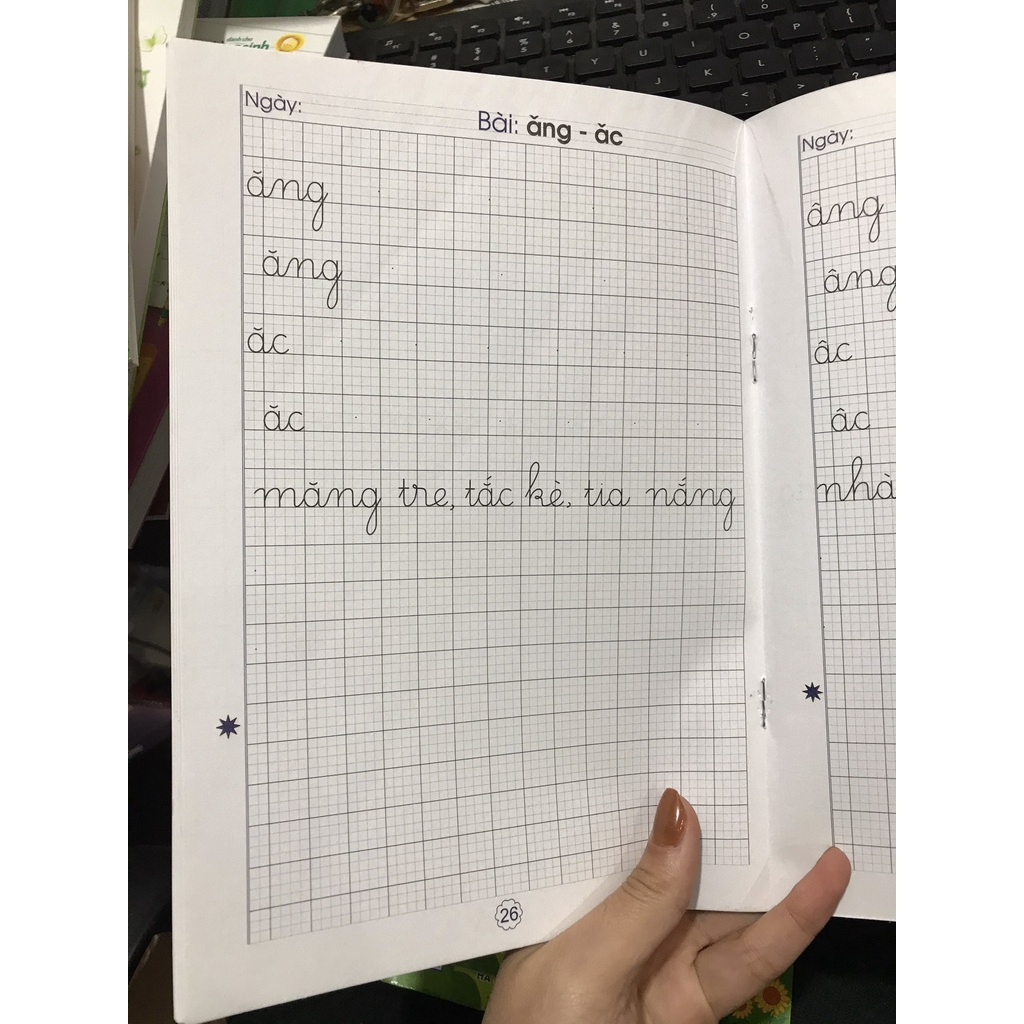 Ngày:
Bài: ăng - ăc
ăng
ăng
ăc
ăc
măng tre, tắc kè, tia nắng
26
Ngày:
âng
âng
âc
âc
nhà